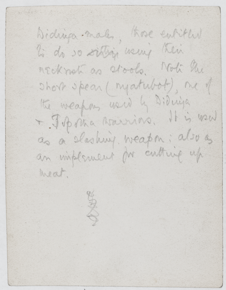 Didinga males, those entitled
to do so using their
neckrests as stools. Note the
short spear (nyatubot), one of
the weapons used by Didinga
+ Toposa warriors. It is used
as a slashing weapon; also as
an implement for cutting up
meat.